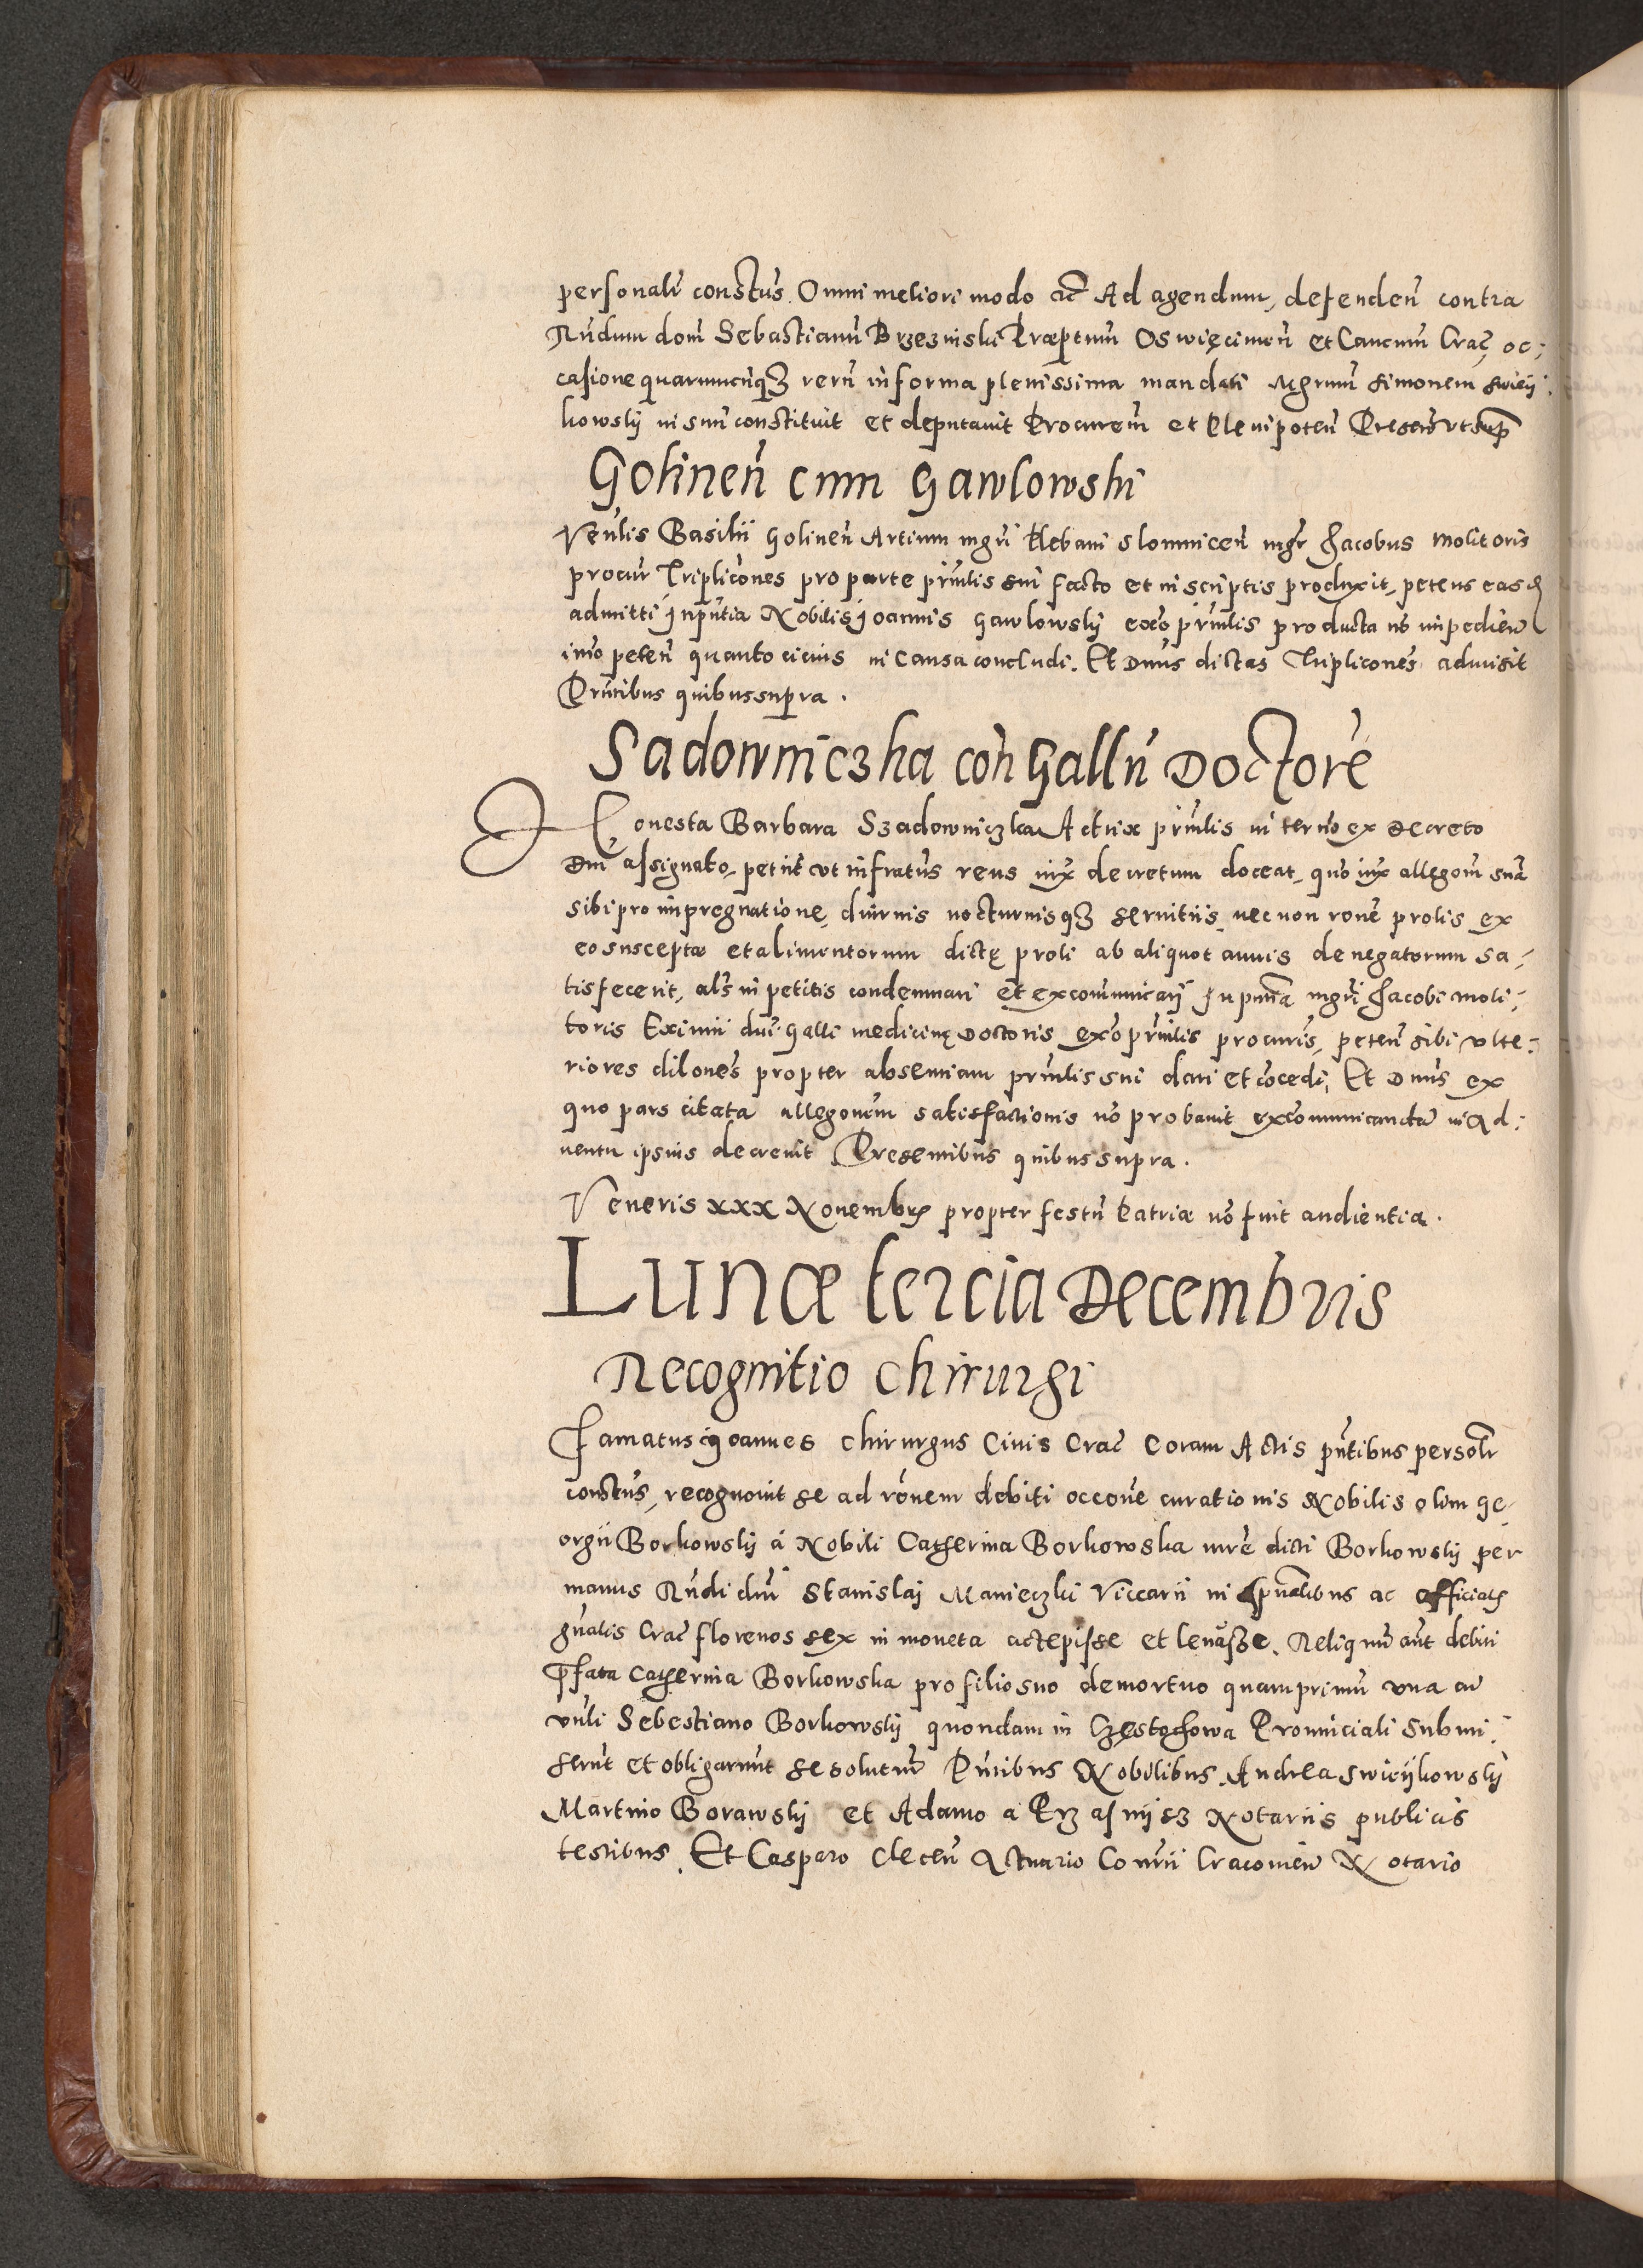 personalr constus. Omni meliori modo ac Ad agendum, defenden contra
Rndum dom Sebastianu Brzeznski Præptum Oswięcimen et Cancum Crac, oc;
casione quarumcunqz reru in forma plenissima mandati Mgrum Simonem Swieij:
kowsky in suu constituit et deputavit Procurem et Plenipoten Presen ut sup
Golinen cum Gawlowski
Venlis Basilii Golinen Artium mgri Plebani Slomnicen mgr Jacobus Molitoris
procur Triplicones pro parte prinlis sui facto et in scriptis produxit, petens easd
admitti In pntia Nobilis Joannis Gawlowsky exo prinlis producta no impedien
imo peten quanto cicius in causa concludi. Et Dnus dictas Triplicones admisit
Prntibus quibus supra.
Sadowniczka con Gallu Doctore
Honesta Barbara Szadowniczka Actrix prinlis in termo ex Decreto
Dni assignato, petiit ut infratus reus iux decretum doceat, quo iux allegom sua
sibi pro impregnatione, diurnis nocturnisqz servitiis, nec non rone prolis ex
eo susceptæ et alimentorum dictę proli ab aliquot annis denegatorum sa-
tisfecerit, als in petitis condemnari et excommunicari In pntia mgri Jacobi Moli-
toris Eximii dni Galli medicinę Doctoris exo prinlis procuris, peten sibi ulte-
riores dilones propter absentiam prinlis sui dari et cocedi, Et Dnus ex
quo pars citata allegonem satisfactionis no probavit excommunicandu in Ad:
ventu ipsius decrevit Presentibus quibus supra.
Veneris xxx Novembris propter festu Patriæ no fuit audientia.
Lunæ tercia Decembris
Recognitio Chirurgi
Famatus Joannes Chirurgus Civis Crac Coram Actis pntibus personlr
constus, recognovit se ad ronem debiti occone curationis Nobilis olim Ge-
orgii Borkowsky a Nobili Catherina Borkowska mre dicti Borkowsky per
manus Rndi dni Stanislaj Manieczki Viccarii in spualibus ac officialis
gnalis Crac florenos sex in moneta accepisse et levasse. Reliquu aut debiti
Pfata Catherina Borkowska pro filio suo demortuo quamprimu una cu
Vnli Sebestiano Borkowsky quondam in Czestochowa Provinciali submi:
serut et obligarunt se soluturu Pntibus Nobilibus. Andrea Swieijkowsky
Martino Borawsky et Adamo a Przasnijsz Notariis publicis
testibus. Et Casparo Clecen Actuario Consrii Cracovien Notario